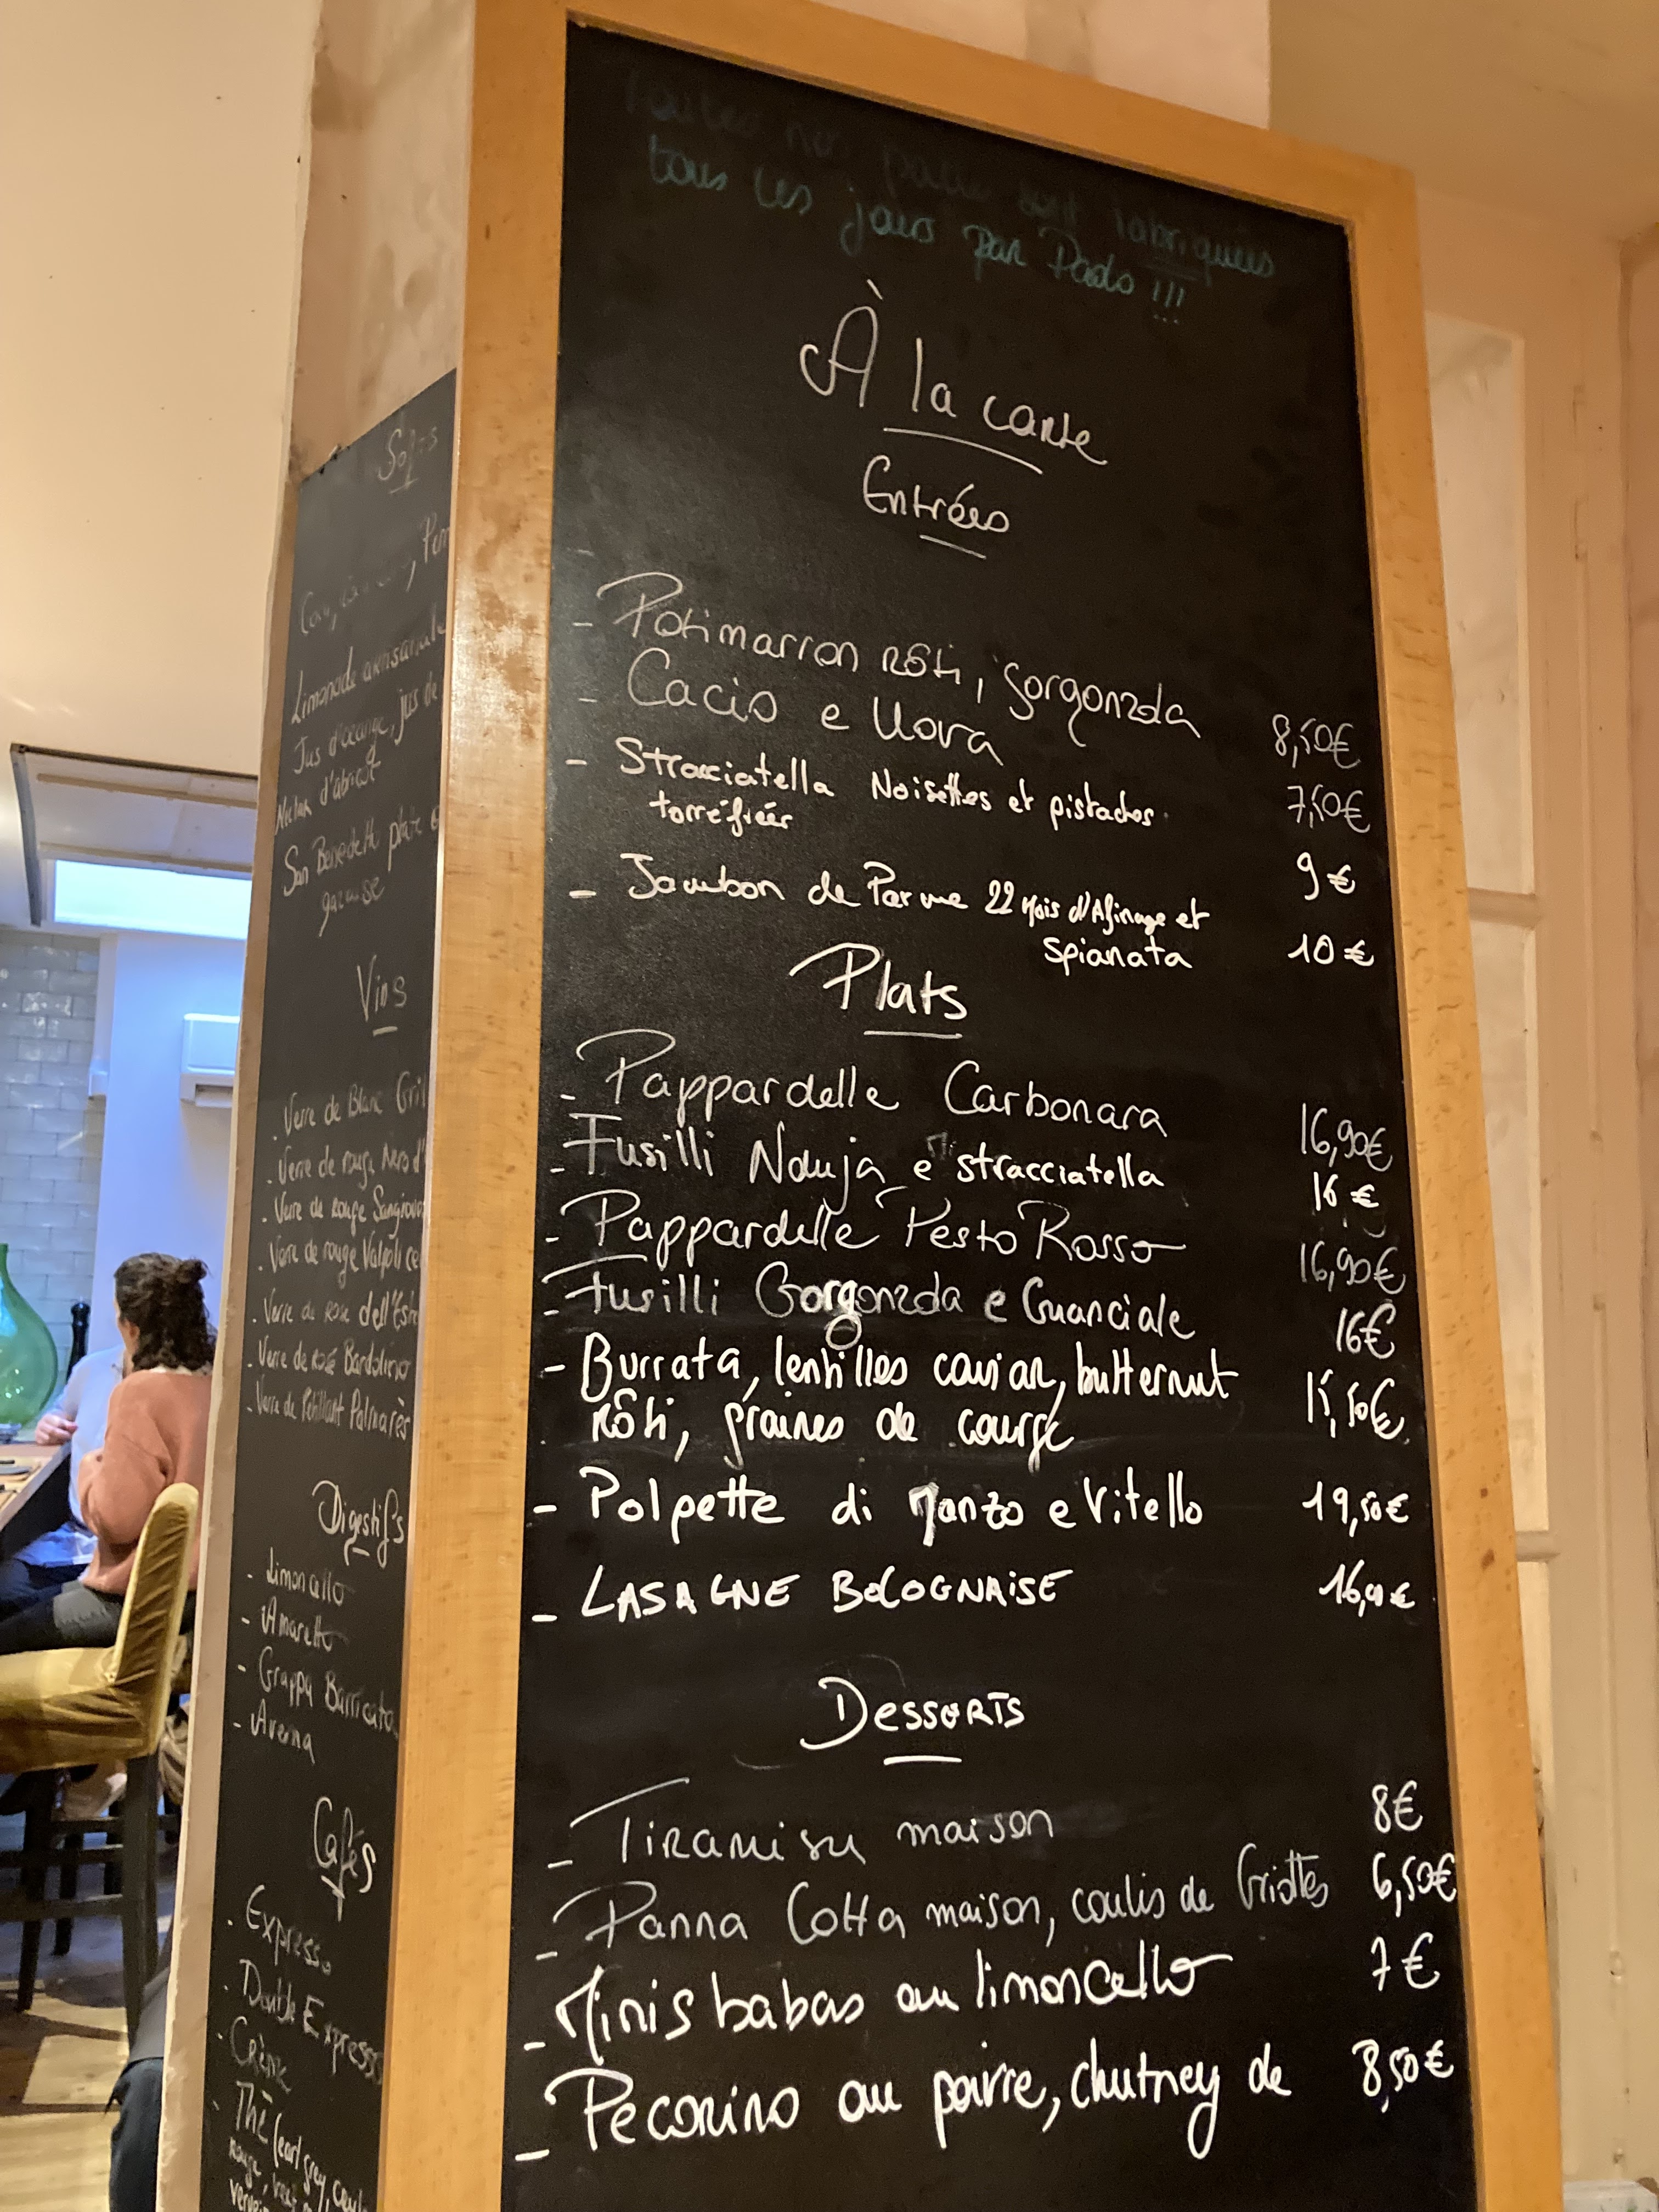 Toutes nos pâtes sont fabriquées
tous les jours par Paolo !!!
À la carte
Entrées
- Potimarron rôti, gorgonzola 8,50€
- Cacio e Uova 7,50€
- Stracciatella Noisettes et pistaches
torréfiées 9€
- Jambon de Parme 22 Mois d'Afinage et
spianata 10€
Plats
- Pappardelle Carbonara 16,90€
- Fusilli Nduja e stracciatella 16€
- Pappardelle Pesto Rosso 16,90€
- Fusilli Gorgonzola e Guanciale 16€
- Burrata, lentilles caviar, butternut
rôti, graines de courge 15,50€
- Polpette di Manzo e Vitello 19,50€
- LASAGNE BOLOGNAISE
Desserts
- Tiramisu maison 8€
- Panna Cotta maison, coulis de Griottes 6,50€
- Minis babas au limoncello 7€
- Pecorino au poivre, chutney de 8,50€
Softs
Limonade artisanale
Jus d'orange, jus de
Nectar d'abricot
San Benedetto plate
gazeuse
Vins
. Verre de Blanc Gril
. Verre de rouge Nero d'
. Verre de rouge Sangiove
. Verre de rouge Valpolice
. Verre de rosé dell'Este
- Verre de rosé Bardolino
- Verre de Pétillant Palmarès
Digestifs
- Limoncello
- Amaretto
- Grappa Barricata
- Averna
Cafés
. Expresso
. Double Expresso
. Crème
. Thé (earl grey,
rouge,